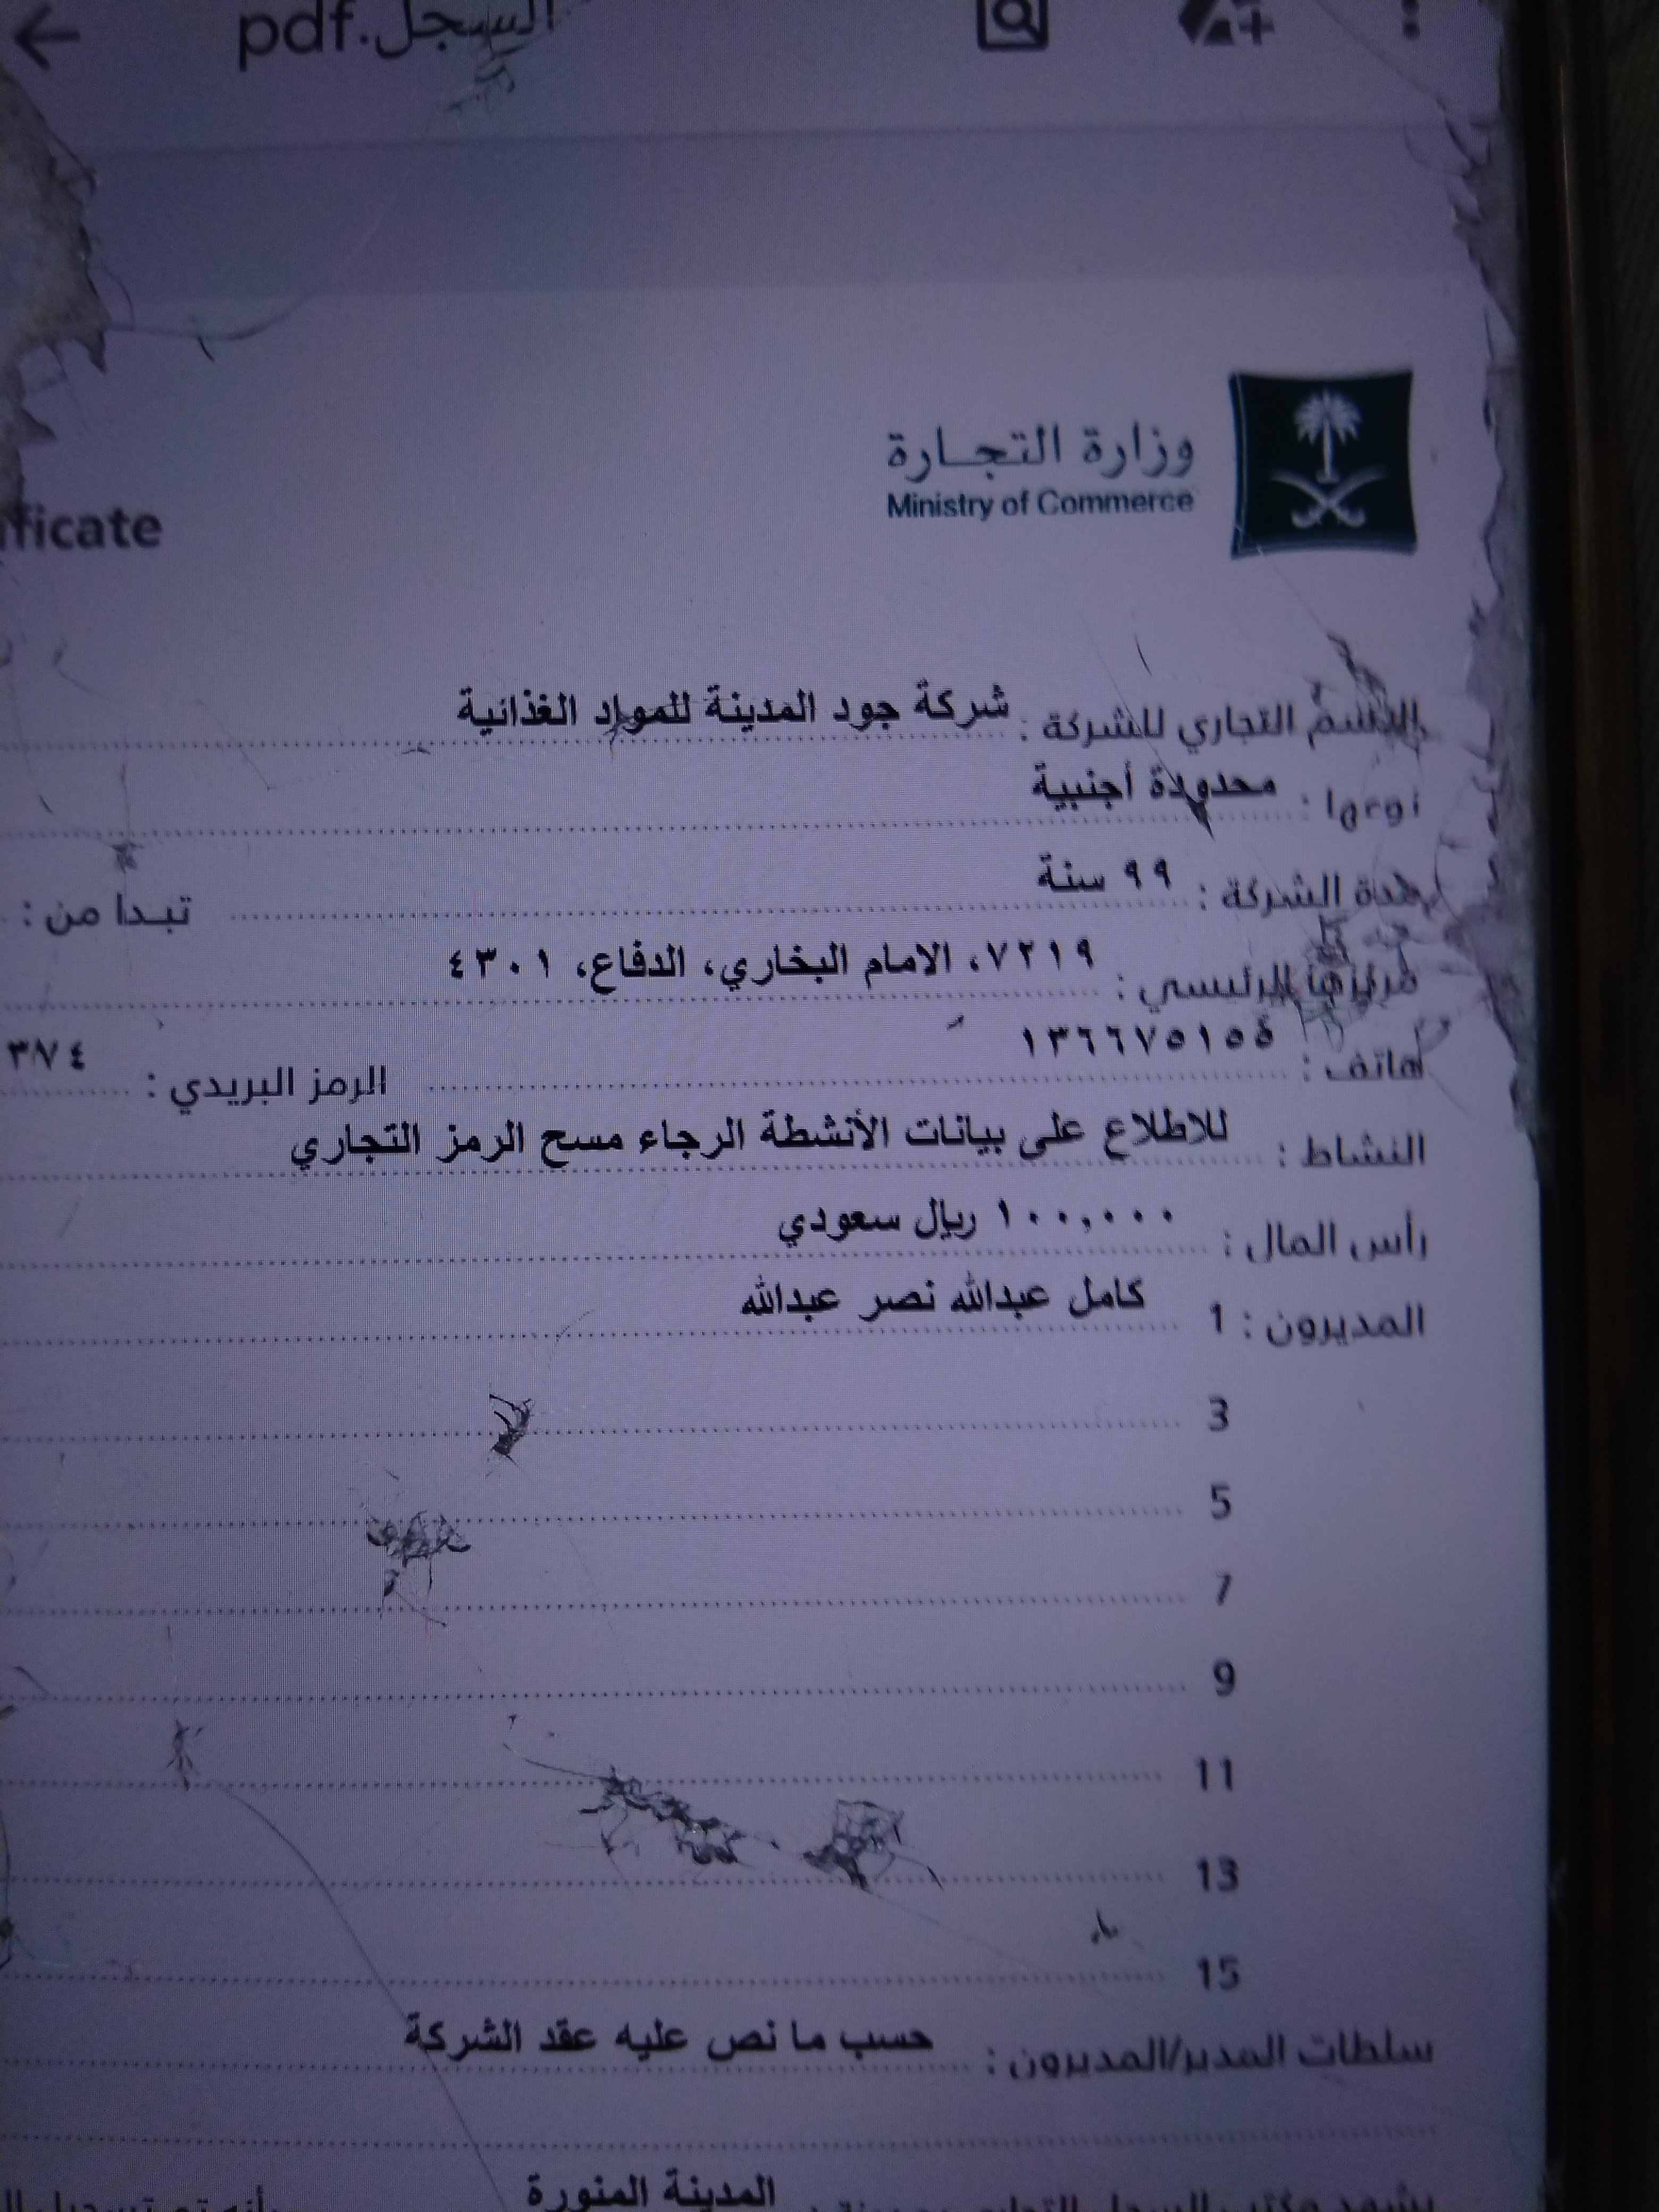 السجل.pdf
وزارة التجارة
Ministry of Commerce
ficate
الإسم التجاري للشركة : شركة جود المدينة للمواد الغذائية
نوعها : محدودة أجنبية
مدة الشركة : ٩٩ سنة تبدا من :
مركزها الرئيسي : ٧٢١٩، الامام البخاري، الدفاع، ٤٣٠١
هاتف : الرمز البريدي :
النشاط : للاطلاع على بيانات الأنشطة الرجاء مسح الرمز التجاري
رأس المال : ١٠٠,٠٠٠ ريال سعودي
المديرون : 1 كامل عبدالله نصر عبدالله
3
5
7
9
11
13
15
سلطات المدير/المديرون : حسب ما نص عليه عقد الشركة
يشهد مكتب السجل التجاري بمدينة : المدينة المنورة بأنه تم تسجيل